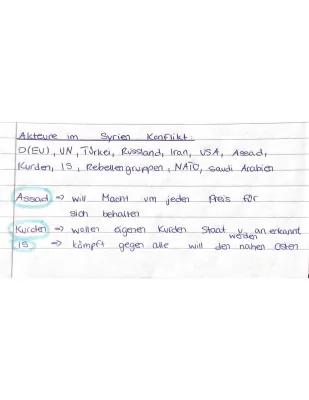 Akteure im Syrien Konflikt:
D(EU), UN, Türkei, Russland, Iran, USA, Assad,
Kurden, IS, Rebellengruppen, NATO, Saudi Arabien
Assad => will Macht um jeden Preis für
sich behalten
Kurden => wollen eigenen Kurden Staat u. anerkannt
werden
IS => kämpft gegen alle will den nahen Osten